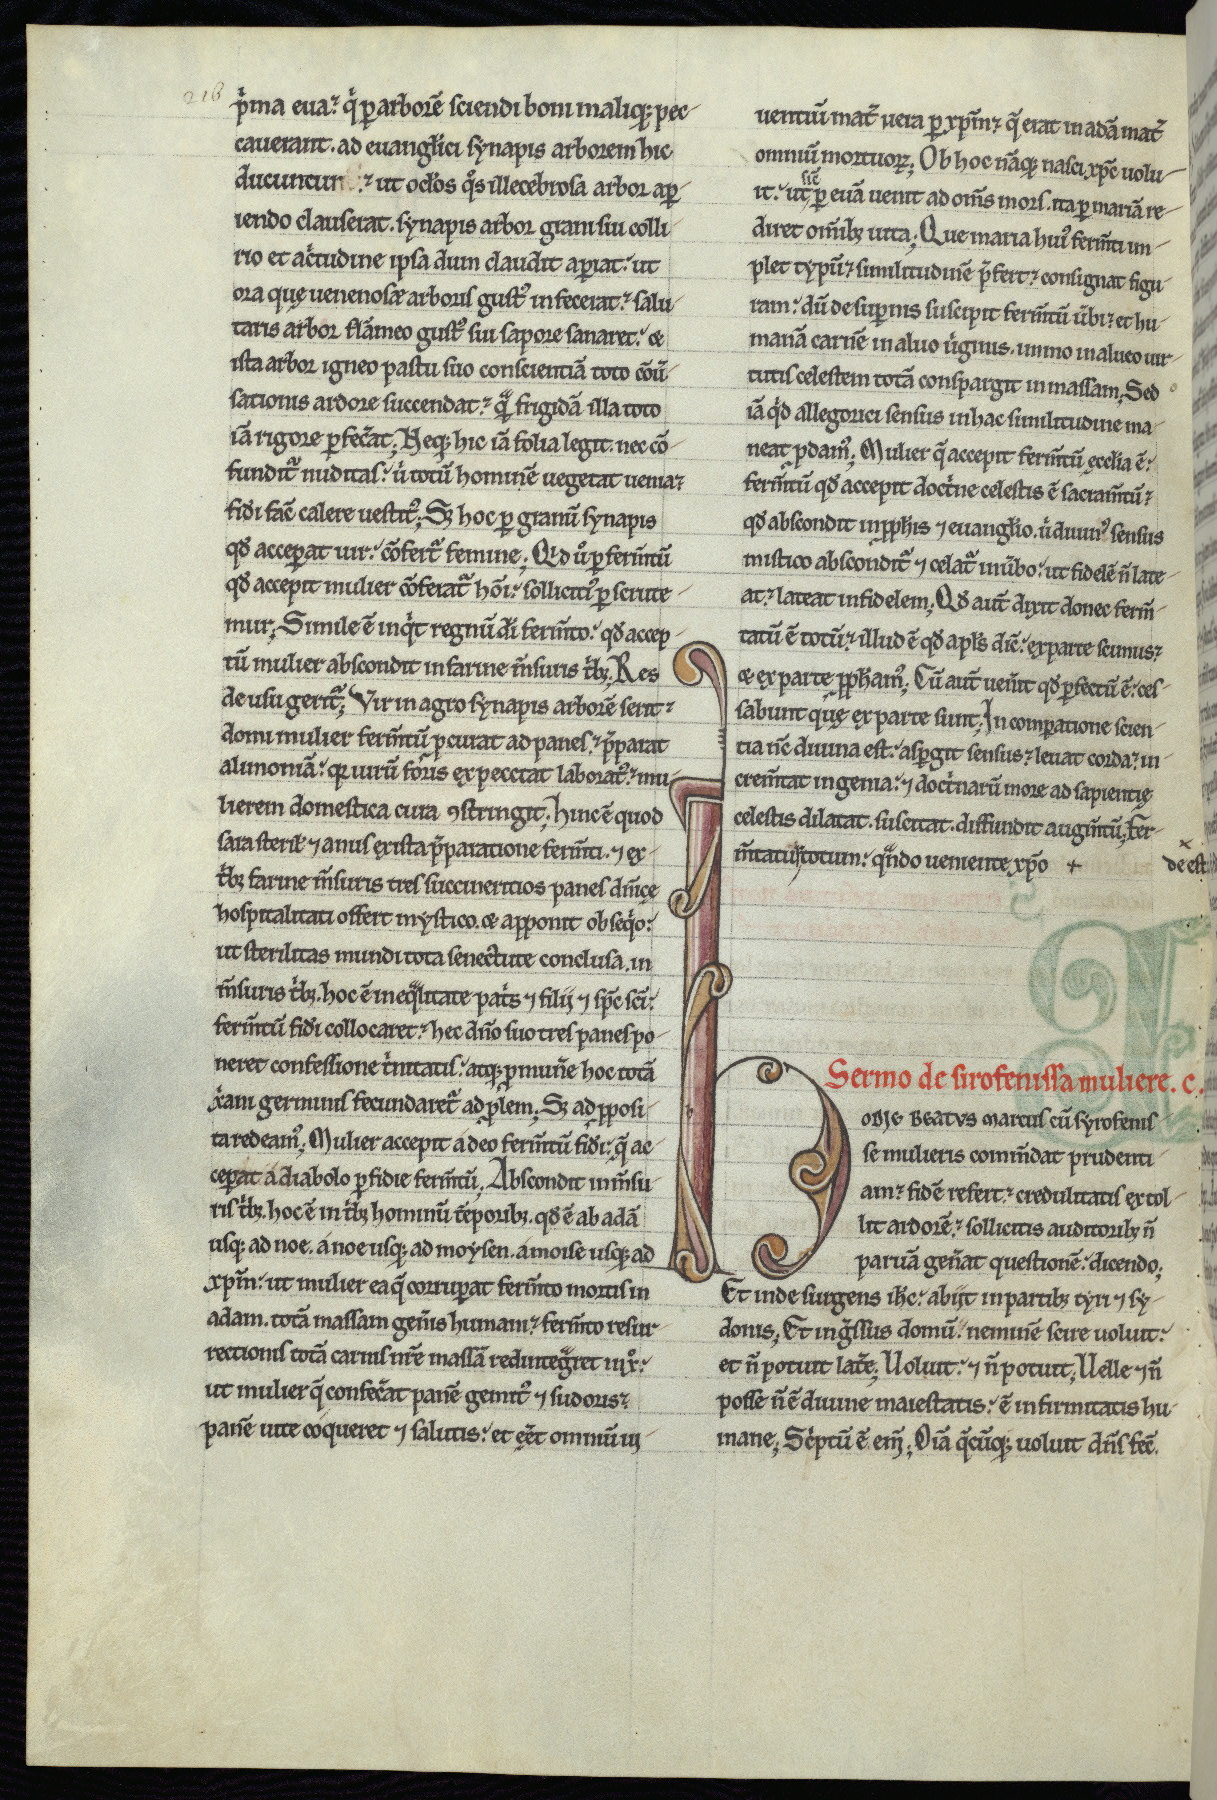 216
p̄ma eua. q̇ ꝑ arborē sciendi boni maliq; pec-
cauerant. ad euangl̓ici synapis arborem hic
ducuncur ut oc̄los q̊s illecebrosa arbor aꝑ
iendo clauserat. synapis arbor grani sui colli
rio et ac̓tudine ipsa dum claudit aꝑiat. ut
ora quę uenenosæ arboris gust᷒ infecerat. salu
taris arbor flāmeo gust᷒ sui sapore sanaret. &
ista arbor igneo pastu suo conscientiā toto cōū-
sationis ardore succendat. qᷓ frigidā illa toto
iā rigore ꝑfec̄at; Neq; hic iā folia legit. nec cō-
fundit᷑ nuditas. ū totū hominē uegetat uenia.
fidi fac̄ calere uestit᷒; Sꝫ hoc ꝑ granū synapis
qđ acceꝑat uir. cōfert᷑ femine; Qid u̓ ꝑ ferm̄tū
qđ accepit mulier cōferat᷑ hōi. sollicit᷒ ꝑscrute-
mur; Simile ē inq̇t regnū dī ferm̄to. qđ accep-
tū mulier abscondit in farine m̄suris t̓bꝫ; Res
de usu gerit᷑; Vir in agro synapis arborē serit.
domi mulier ferm̄tū ꝓcurat ad panes. p̄parat
alimoniā. qꝛ uirū foris expecctat laborat᷒. mu-
lierem domestica cura ꝯstringit; Hinc ē quod
sara steril̓ ⁊ anus exista p̄paratione ferm̄ti. ⁊ ex
t̓bꝫ farine m̄suris tres succinericios panes dn̄icę
hospitalitati offert mystico. & apponit obseq̇o.
ut sterilitas mundi tota senectute conclusa. in
m̄suris t̓bꝫ. hoc ē in eqᷓlitate pat̓s ⁊ filij ⁊ sp̄c sc̄i.
ferm̄tū fidi collocaret. hec dn̄o suo tres panes po-
neret confessione t̓nitatis. atq; ꝑ mun̄e hoc totā
x̄am germinis fecundaret᷑ ad ꝓlem; Sꝫ ad ꝓposi-
ta redeam᷒; Mulier accepit a deo ferm̄tū fidi. q̄ ac-
ceꝑat a diabolo ꝑfidie ferm̄tū; Abscondit in m̄su-
ris t̓bꝫ. hoc ē in t̓bꝫ hominū tēporibꝫ. qđ ē ab adā
usq; ad noe. a noe usq; ad moysen. a moise usq; ad
xp̄m. ut mulier ea q̄ corruꝑat ferm̄to mortis in
adam. totā massam gen̄is humani. ferm̄to resur-
rectionis totā carnis nr̄e massā redintegᷓret in x̊.
ut mulier q̄ confec̄at panē gemit᷒ ⁊ sudoris.
panē uite coqueret ⁊ salutis. et ēēt omniū ui-
uentiū mat̄ uera ꝑ xp̄m. q̄ erat in adā mat̄
omniū mortuoꝝ; Ob hoc nāq; nasci xp̄c uolu-
it. ut sic̄ ꝑ euā uenit ad om̄s mors. ita ꝑ mariā re-
diret om̄ibꝫ uita; Que maria hui᷒ ferm̄ti im-
plet typū. similitudinē p̄fert. consignat figu
ram. dū de suꝑnis suscipit ferm̄tū ūbi. et hu
manā carnē in aluo ūginis. immo in alueo uir-
tutis celestem totā conspargit in massam; Sed
iā q̇d allegorici sensus in hac similitudine ma
neat ꝓdam᷒; Mulier q̄ accepit ferm̄tū ecclia ē.
ferm̄tū qđ accepit doct̓ne celestis ē sacram̄tū.
qđ abscondit in ꝓph̄is ⁊ euangl̓io. ū diuin᷒ sensus
mistico abscondit᷑ ⁊ celat᷑ in ūbo. ut fidelē n̄ late-
at. lateat infidelem; Qđ aut̄ dixit donec ferm̄-
tatū ē totū. illud ē qđ apl̄s dic̄. ex parte scimus.
& ex parte ꝓph̄am᷒; Cū aut̄ uen̄it qđ ꝑfectū ē. ces-
sabunt quę ex parte sunt; In comparatione scien-
tia nc̄ diuina est. aspgit sensus. leuat corda. in-
crem̄tat ingenia. ⁊ doct̓narū more ad sapientię
celestis dilatat. suscitat. diffundit augm̄tū; Fer-
m̄tatū totum. qn̄do ueniente xp̄o +
de est
Sermo de sirofenissa muliere. c.
Hodie beatvs marcus cū syrofenis-
se mulieris comm̄dat prudenti-
am. fidē refert. credulitatis extol-
lit ardorē. sollicitis auditoribꝫ n̄
paruā gen̄at questionē. dicendo;
Et inde surgens ih̄c. abijt in partibꝫ tyri ⁊ sy-
donis; Et ing̓ssus domū. neminē scire uoluit.
et n̄ potuit lat̄e; Uoluit. ⁊ n̄ potuit; Uelle ⁊ n̄
posse n̄ ē diuine maiestatis. ē infirmitatis hu-
mane; Sc̓ptū ē eni̅; Oīā q̄cūq; uoluit dn̄s fec̄.